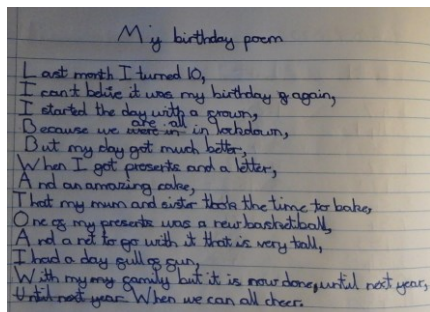 My birthday poem
Last month I turned 10,
I can't belive it was my birthday again,
I started the day with a frown,
Because we are all in lockdown,
But my day got much better,
When I got presents and a letter,
And an amazing cake,
That my mum and sister took the time to bake,
One of my presents was a new basketball,
And a net to go with it that is very tall,
I had a day full of fun,
With my my family but it is now done, until next year,
Until next year When we can all cheer.